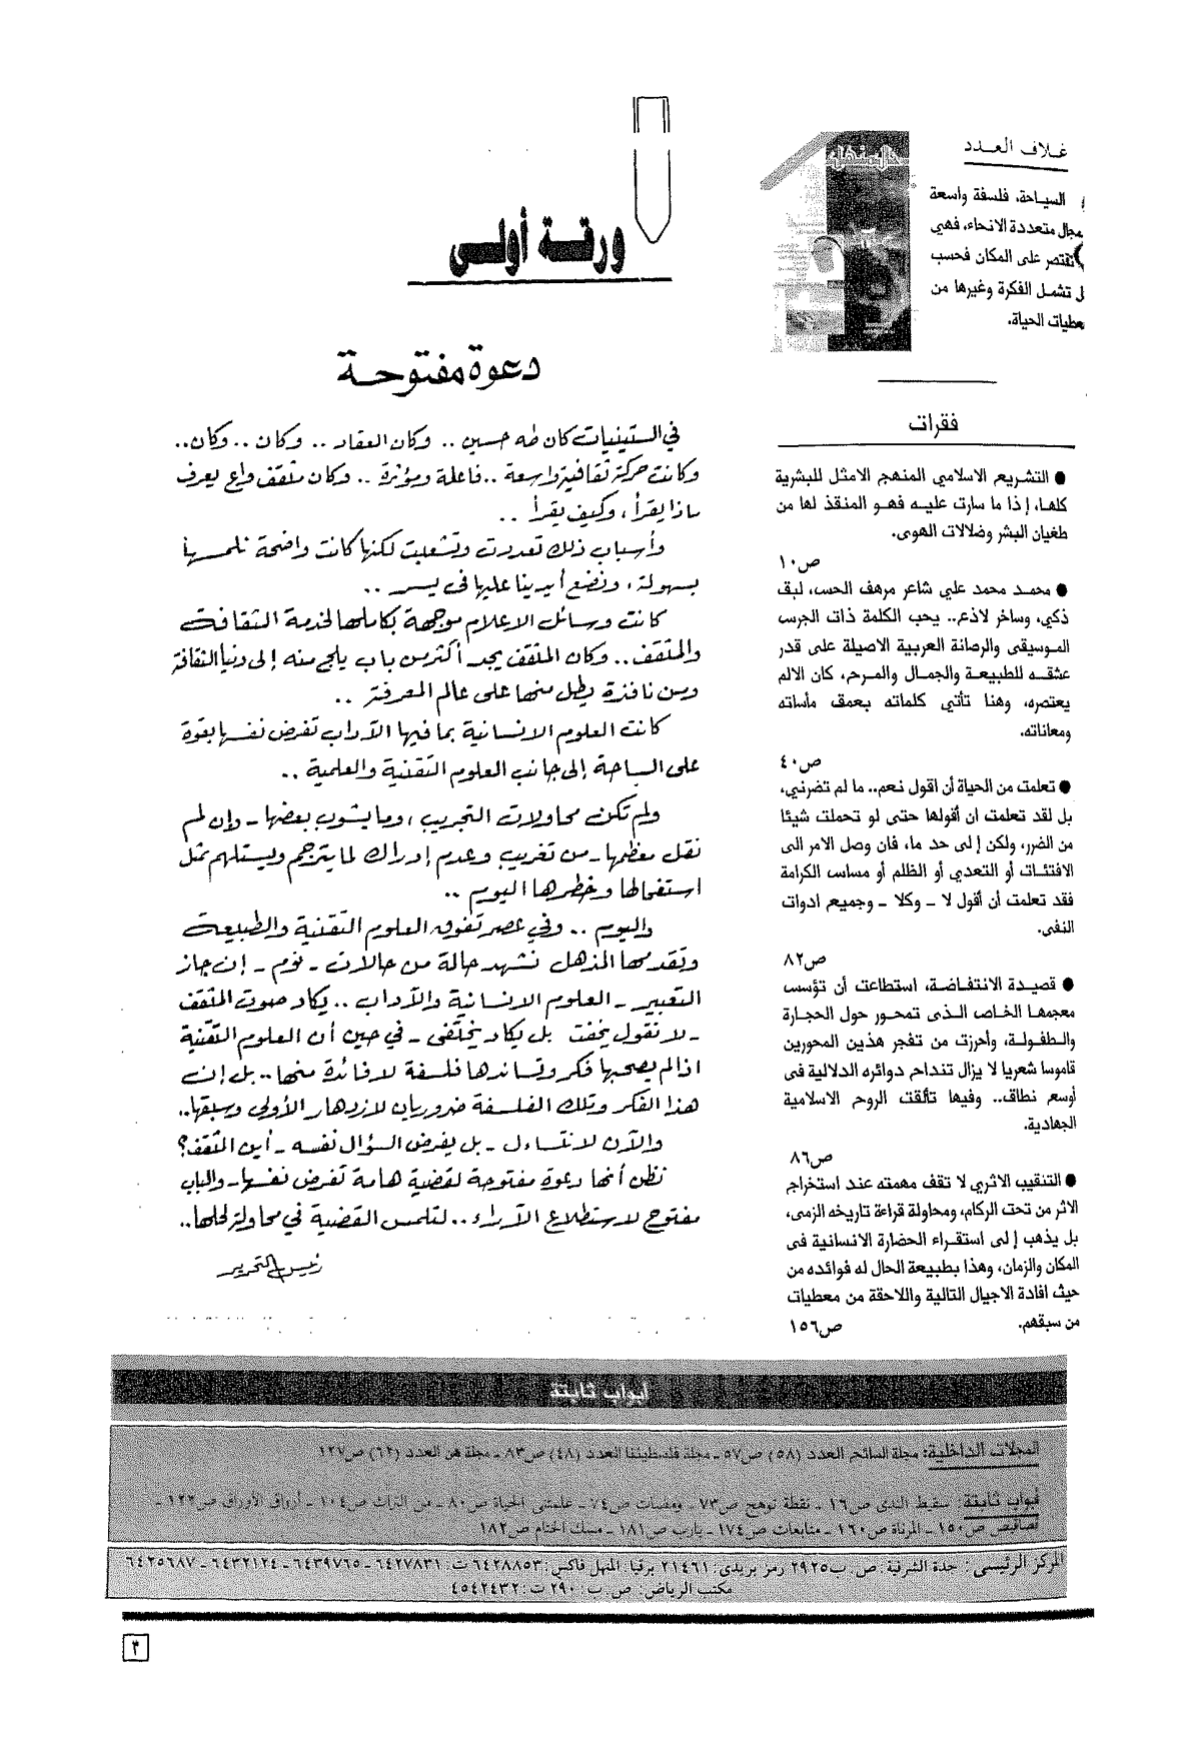 غلاف العدد
السياحة، فلسفة واسعة
مجال متعددة الانحاء، فهي
تقتصر على المكان فحسب
ل تشمل الفكرة وغيرها من
معطيات الحياة.
فقرات
● التشريع الاسلامي المنهج الامثل للبشرية
كلها، إذا ما سارت عليه فهو المنقذ لها من
طغيان البشر وضلالات الهوى.
ص١٠
● محمد محمد علي شاعر مرهف الحس، لبق
ذكي، وساخر لاذع.. يحب الكلمة ذات الجرس
الموسيقى والرصانة العربية الاصيلة على قدر
عشقه للطبيعة والجمال والمرح، كان الالم
يعتصره، وهنا تأتي كلماته بعمق مأساته
ومعاناته.
ص٤٠
● تعلمت من الحياة أن اقول نعم.. ما لم تضرني،
بل لقد تعلمت ان أقولها حتى لو تحملت شيئا
من الضرر، ولكن إلى حد ما، فان وصل الامر الى
الافتئات أو التعدي أو الظلم أو مساس الكرامة
فقد تعلمت أن أقول لا ـ وكلا ـ وجميع ادوات
النفى.
ص٨٢
● قصيدة الانتفاضة، استطاعت أن تؤسس
معجمها الخاص الذى تمحور حول الحجارة
والطفولة، وأحرزت من تفجر هذين المحورين
قاموسا شعريا لا يزال تنداح دوائره الدلالية فى
أوسع نطاق.. وفيها تألقت الروح الاسلامية
الجهادية.
ص٨٦
● التنقيب الاثري لا تقف مهمته عند استخراج
الاثر من تحت الركام، ومحاولة قراءة تاريخه الزمى،
بل يذهب إلى استقراء الحضارة الانسانية فى
المكان والزمان، وهذا بطبيعة الحال له فوائده من
حيث افادة الاجيال التالية واللاحقة من معطيات
من سبقهم. ص١٥٦
ورقة أولى
دعوة مفتوحة
في الستينيات كان طه حسين .. وكان العقاد .. وكان .. وكان..
وكانت حركة ثقافية واسعة .. فاعلة ومؤثرة .. وكان مثقف واع يعرف
ماذا يقرأ، وكيف يقرأ ..
وأسباب ذلك تعددت وتشعبت لكنها كانت واضحة نلمسها
بسهولة، ونضع أيدينا عليها فى يسر ..
كانت وسائل الاعلام موجهة بكاملها لخدمة الثقافة
والمثقف .. وكان المثقف يجد أكثر من باب يلج منه إلى دنيا الثقافة
ومن نافذة يطل منها على عالم المعرفة ..
كانت العلوم الانسانية بما فيها الآداب تفرض نفسها بقوة
على الساحة إلى جانب العلوم التقنية والعلمية ..
ولم تكن محاولات التجريب، وما يشوب بعضها ـ وإن لم
نقل معظمها ـ من تغريب وعدم إدراك لما يترجم ويستلهم بمثل
استفحالها وخطرها اليوم ..
واليوم .. وفي عصر تفوق العلوم التقنية والطبيعة
وتقدمها المذهل نشهد حالة من حالات ـ نوم ـ إن جاز
التعبير ـ العلوم الانسانية والآداب .. يكاد صوت المثقف
ـ لا نقول يخفت بل يكاد يختفى ـ في حين أن العلوم التقنية
اذا لم يصحبها فكر وتساندها فلسفة لا فائدة منها .. بل إن
هذا الفكر وتلك الفلسفة ضروريان لازدهار الأولى وسبقها..
والآن لا نتساءل ـ بل يفرض السؤال نفسه ـ أين المثقف؟
نظن أنها دعوة مفتوحة لقضية هامة تفرض نفسها ـ والباب
مفتوح لاستطلاع الآراء .. لتلمس القضية في محاولة لحلها..
رئيس التحرير
أبواب ثابتة
المجلات الداخلية: مجلة السائح العدد (٥٨) ص٥٧ ـ مجلة فلسطيننا العدد (٤٨) ص٨٣ ـ مجلة هن العدد (٦٢) ص١٢٧
أبواب ثابتة: سقيط الندى ص١٦ ـ نقطة توهج ص٧٣ ـ ومضات ص٧٤ ـ علمتنى الحياة ص٨٠ ـ من التراث ص١٠٤ ـ أرواق الأوراق ص١٢٢ ـ
ص١٥٠ ـ المرناة ص١٦٠ ـ متابعات ص١٧٤ ـ يارب ص١٨١ ـ مسك الختام ص١٨٢
المركز الرئيسى: جدة الشرفية ص.ب ٢٩٢٥ رمز بريدى: ٢١٤٦١ برقيا: المنهل فاكس: ٦٤٢٨٨٥٣ ت: ٦٤٢٧٨٣١ ـ ٦٤٣٩٧٦٥ ـ ٦٤٣٢١٢٤ ـ ٦٤٢٥٦٨٧
مكتب الرياض: ص.ب: ٢٩٠ ت: ٤٥٤٢٤٣٢
٣